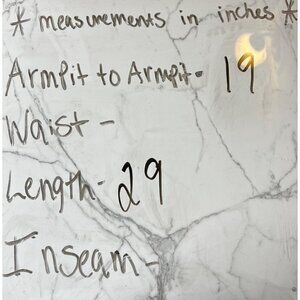 * measurements in inches *
Armpit to Armpit- 19
Waist -
Length- 29
Inseam-